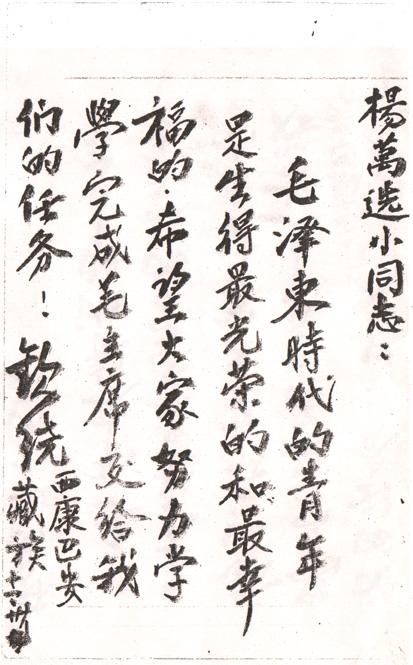 楊萬选小同志：
毛泽東時代的青年
是生得最光荣的和最幸
福的.希望大家努力学
學完成毛主席交给我
们的任务！ 欽绕
西康巴安
藏族